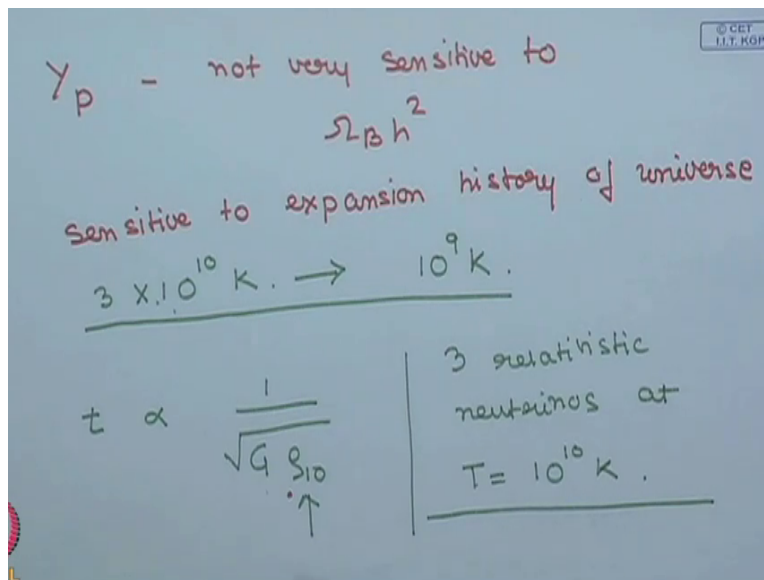 © CET
I.I.T. KGP
Y_p - not very sensitive to
Ω_B h²
sensitive to expansion history of universe
3 × 10¹⁰ K. → 10⁹ K.
t ∝ 1 / √(G ρ₁₀)
↑
3 relativistic
neutrinos at
T = 10¹⁰ K.